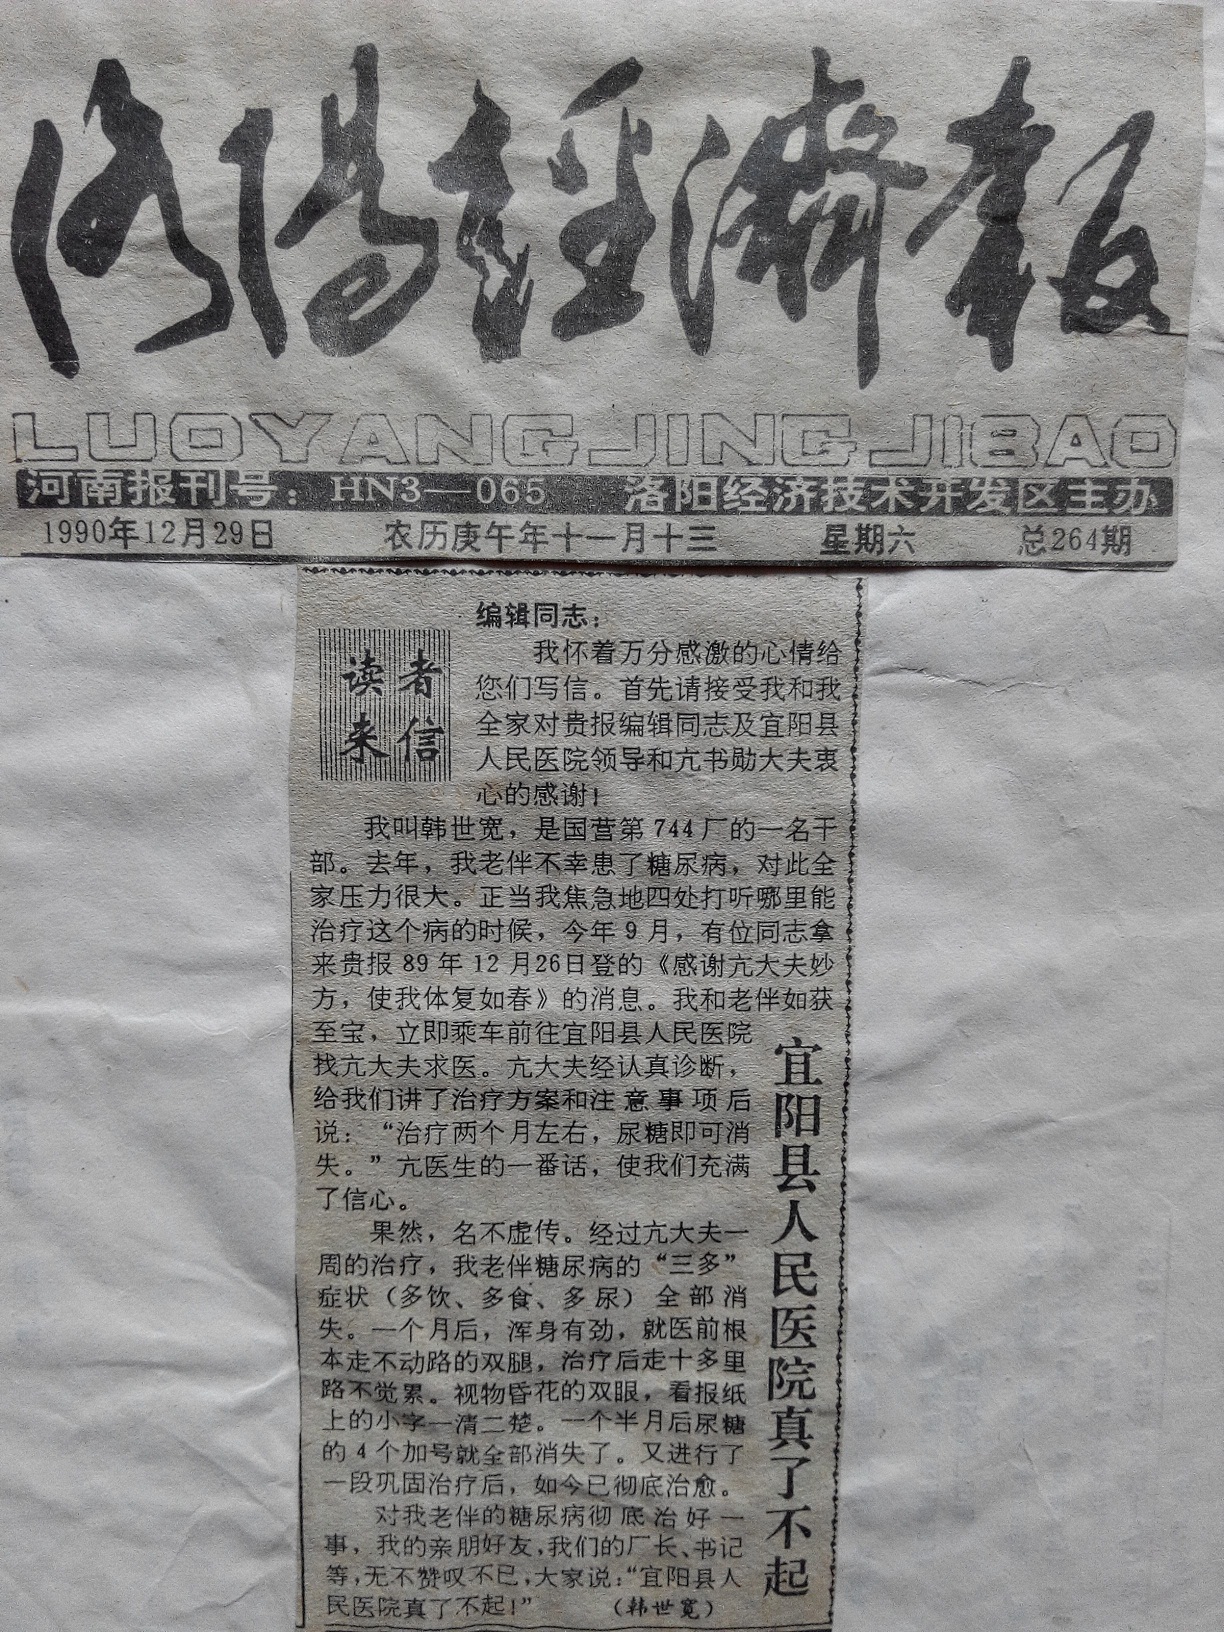 洛阳经济报
LUOYANGJINGJIBAO
河南报刊号：HN3—065 洛阳经济技术开发区主办
1990年12月29日 农历庚午年十一月十三 星期六 总264期
读者
来信
编辑同志：
我怀着万分感激的心情给
您们写信。首先请接受我和我
全家对贵报编辑同志及宜阳县
人民医院领导和亢书勋大夫衷
心的感谢！
我叫韩世宽，是国营第744厂的一名干
部。去年，我老伴不幸患了糖尿病，对此全
家压力很大。正当我焦急地四处打听哪里能
治疗这个病的时候，今年9月，有位同志拿
来贵报89年12月26日登的《感谢亢大夫妙
方，使我体复如春》的消息。我和老伴如获
至宝，立即乘车前往宜阳县人民医院
找亢大夫求医。亢大夫经认真诊断，
给我们讲了治疗方案和注意事项后
说：“治疗两个月左右，尿糖即可消
失。”亢医生的一番话，使我们充满
了信心。
果然，名不虚传。经过亢大夫一
周的治疗，我老伴糖尿病的“三多”
症状（多饮、多食、多尿）全部消
失。一个月后，浑身有劲，就医前根
本走不动路的双腿，治疗后走十多里
路不觉累。视物昏花的双眼，看报纸
上的小字一清二楚。一个半月后尿糖
的4个加号就全部消失了。又进行了
一段巩固治疗后，如今已彻底治愈。
对我老伴的糖尿病彻底治好一
事，我的亲朋好友，我们的厂长、书记
等，无不赞叹不已，大家说：“宜阳县人
民医院真了不起！” （韩世宽）
宜阳县人民医院真了不起